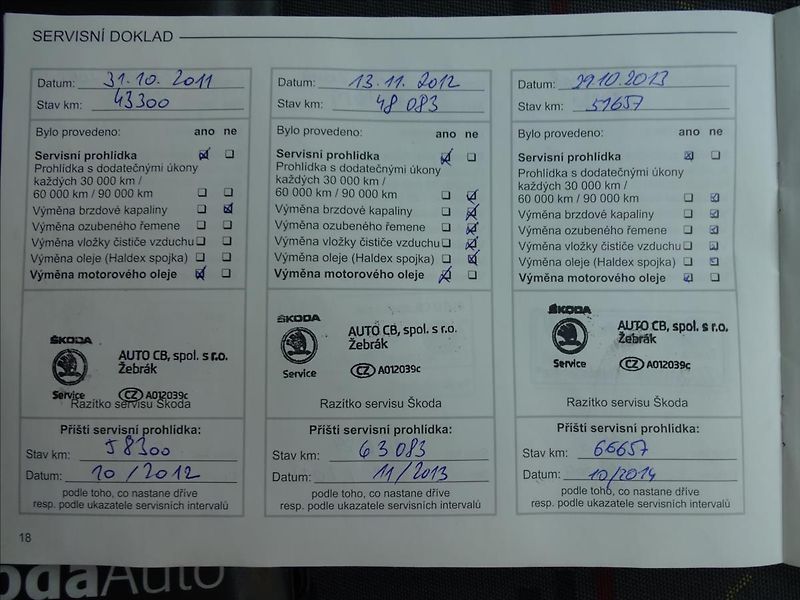 SERVISNÍ DOKLAD
Datum: 31.10. 2011
Stav km: 43300
Bylo provedeno: ano ne
Servisní prohlídka
Prohlídka s dodatečnými úkony
každých 30 000 km /
60 000 km / 90 000 km
Výměna brzdové kapaliny
Výměna ozubeného řemene
Výměna vložky čističe vzduchu
Výměna oleje (Haldex spojka)
Výměna motorového oleje
ŠKODA
AUTO CB, spol. s r.o.
Žebrák
Service CZ A012039c
Razítko servisu Škoda
Příští servisní prohlídka:
Stav km: 58300
Datum: 10/2012
podle toho, co nastane dříve
resp. podle ukazatele servisních intervalů
Datum: 13.11. 2012
Stav km: 48 083
Bylo provedeno: ano ne
Servisní prohlídka
Prohlídka s dodatečnými úkony
každých 30 000 km /
60 000 km / 90 000 km
Výměna brzdové kapaliny
Výměna ozubeného řemene
Výměna vložky čističe vzduchu
Výměna oleje (Haldex spojka)
Výměna motorového oleje
ŠKODA
AUTO CB, spol. s r.o.
Žebrák
Service CZ A012039c
Razítko servisu Škoda
Příští servisní prohlídka:
Stav km: 63 083
Datum: 11/2013
podle toho, co nastane dříve
resp. podle ukazatele servisních intervalů
Datum: 29.10.2013
Stav km: 51657
Bylo provedeno: ano ne
Servisní prohlídka
Prohlídka s dodatečnými úkony
každých 30 000 km /
60 000 km / 90 000 km
Výměna brzdové kapaliny
Výměna ozubeného řemene
Výměna vložky čističe vzduchu
Výměna oleje (Haldex spojka)
Výměna motorového oleje
ŠKODA
AUTO CB, spol. s r.o.
Žebrák
Service CZ A012039c
Razítko servisu Škoda
Příští servisní prohlídka:
Stav km: 66657
Datum: 10/2014
podle toho, co nastane dříve
resp. podle ukazatele servisních intervalů
18
odaAuto